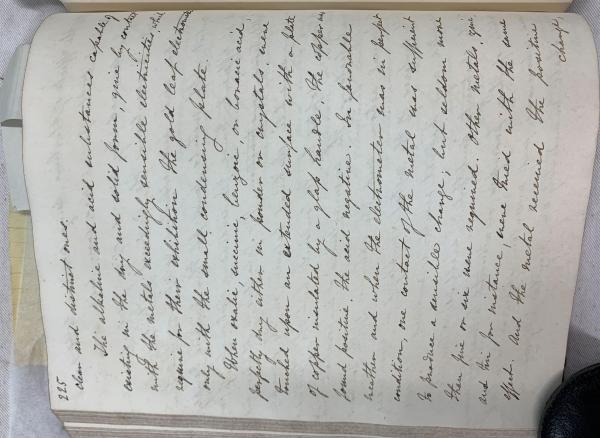 225
clear and distinct ones.
The alkaline and acid substances capable of
existing in the dry and solid form, give by contact
with the metals exceedingly sensible electricities, which
require for their exhibition the gold leaf electrometer
only with the small condensing plate.
When oxalic, succinic, benzoic, or boracic acid,
perfectly dry either in powder or crystals, were
touched upon an extended surface with a plate
of copper insulated by a glass handle, the copper was
found positive. the acid negative. In favorable
weather and when the electrometer was in perfect
condition, one contact of the metal was sufficient
to produce a sensible charge; but seldom more
than five or six were required. Other metals, zinc
and tin for instance, were tried with the same
effect. And the metal received the positive
charge,